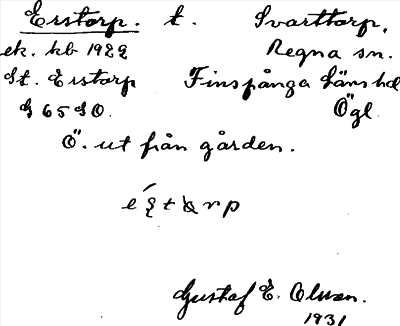 Erstorp. t. Svarttorp,
ek. kb 1929 Regna sn.
St. Erstorp Finspånga läns hd
G 65 SO. Ögl
Ö. ut från gården.
Gustaf E. Olsson.
1931